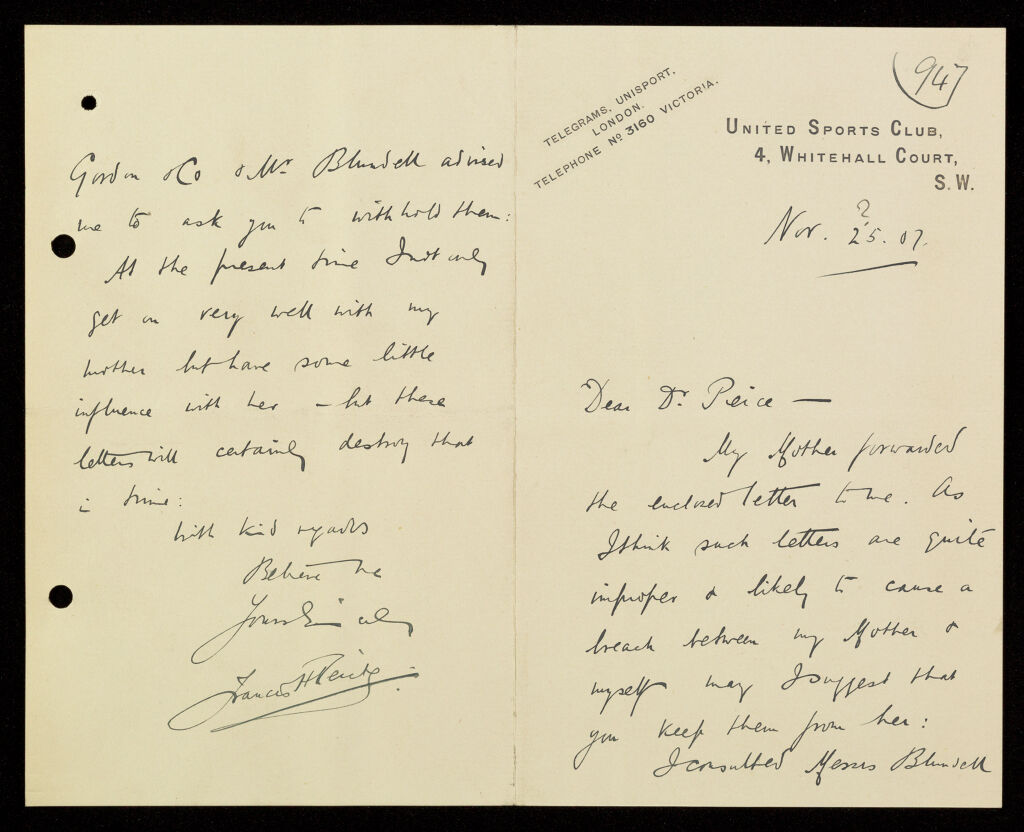 947
TELEGRAMS, UNISPORT,
LONDON.
TELEPHONE No 3160 VICTORIA.
UNITED SPORTS CLUB,
4, WHITEHALL COURT,
S.W.
?
Nov. 25. 07.
Dear Dr Peirce —
My Mother forwarded
the enclosed letter to me. As
I think such letters are quite
improper & likely to cause a
breach between my Mother &
myself may I suggest that
you keep them from her:
I consulted Messrs Blundell
Gordon & Co & Mr Blundell advised
me to ask you to withhold them:
At the present time I not only
get on very well with my
mother but have some little
influence with her – but these
letters will certainly destroy that
in time:
With kind regards
Believe me
Yours Sincerely
Francis H